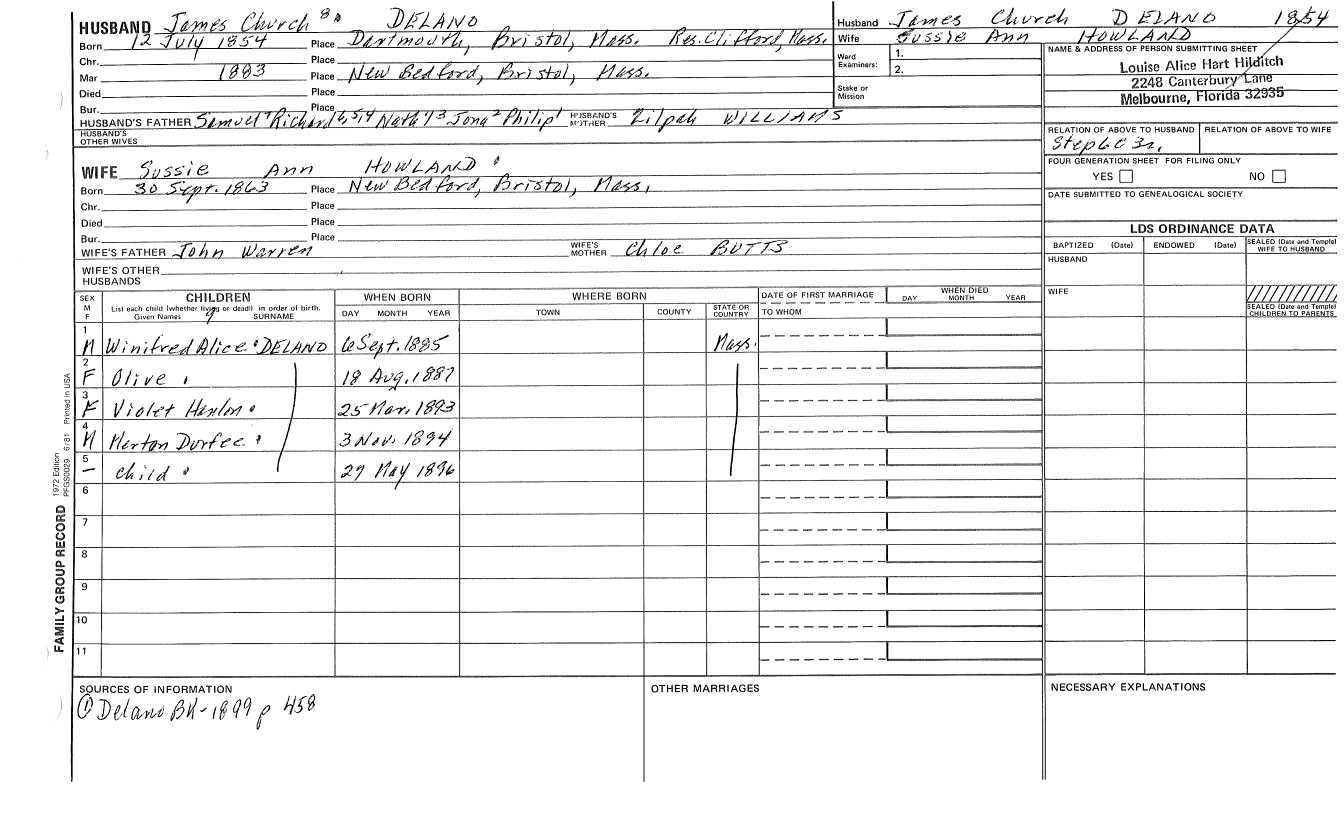 HUSBAND James Church 8 DELANO
Born 12 July 1854 Place Dartmouth, Bristol, Mass. Res. Clifford, Mass.
Chr. Place
Mar 1883 Place New Bedford, Bristol, Mass.
Died Place
Bur. Place
HUSBAND'S FATHER Samuel 7 Richard 6,5,4 Nath'l 3 Jona 2 Philip 1 HUSBAND'S MOTHER Zilpah WILLIAMS
HUSBAND'S OTHER WIVES
WIFE Sussie Ann HOWLAND
Born 30 Sept. 1863 Place New Bedford, Bristol, Mass.
Chr. Place
Died Place
Bur. Place
WIFE'S FATHER John Warren WIFE'S MOTHER Chloe BUTTS
WIFE'S OTHER HUSBANDS
Husband James Church DELANO 1854
Wife Sussie Ann HOWLAND
Ward Examiners: 1.
2.
Stake or Mission
NAME & ADDRESS OF PERSON SUBMITTING SHEET
Louise Alice Hart Hilditch
2248 Canterbury Lane
Melbourne, Florida 32935
RELATION OF ABOVE TO HUSBAND RELATION OF ABOVE TO WIFE
FOUR GENERATION SHEET FOR FILING ONLY
YES NO
DATE SUBMITTED TO GENEALOGICAL SOCIETY
LDS ORDINANCE DATA
BAPTIZED (Date) ENDOWED (Date) SEALED (Date and Temple) WIFE TO HUSBAND
HUSBAND
WIFE
SEALED (Date and Temple) CHILDREN TO PARENTS
SEX M F CHILDREN WHEN BORN WHERE BORN DATE OF FIRST MARRIAGE WHEN DIED
List each child (whether living or dead) in order of birth.
Given Names SURNAME DAY MONTH YEAR TOWN COUNTY STATE OR COUNTRY TO WHOM DAY MONTH YEAR
1 M Winifred Alice DELANO 6 Sept. 1885 Mass.
2 F Olive 18 Aug. 1887
3 F Violet Hanlon 25 Mar. 1893
4 M Merton Durfee 3 Nov. 1894
5 – child 27 May 1896
6
7
8
9
10
11
SOURCES OF INFORMATION OTHER MARRIAGES NECESSARY EXPLANATIONS
① Delano BK-1899 p 458
FAMILY GROUP RECORD 1972 Edition PFGS0029 6/81 Printed in USA